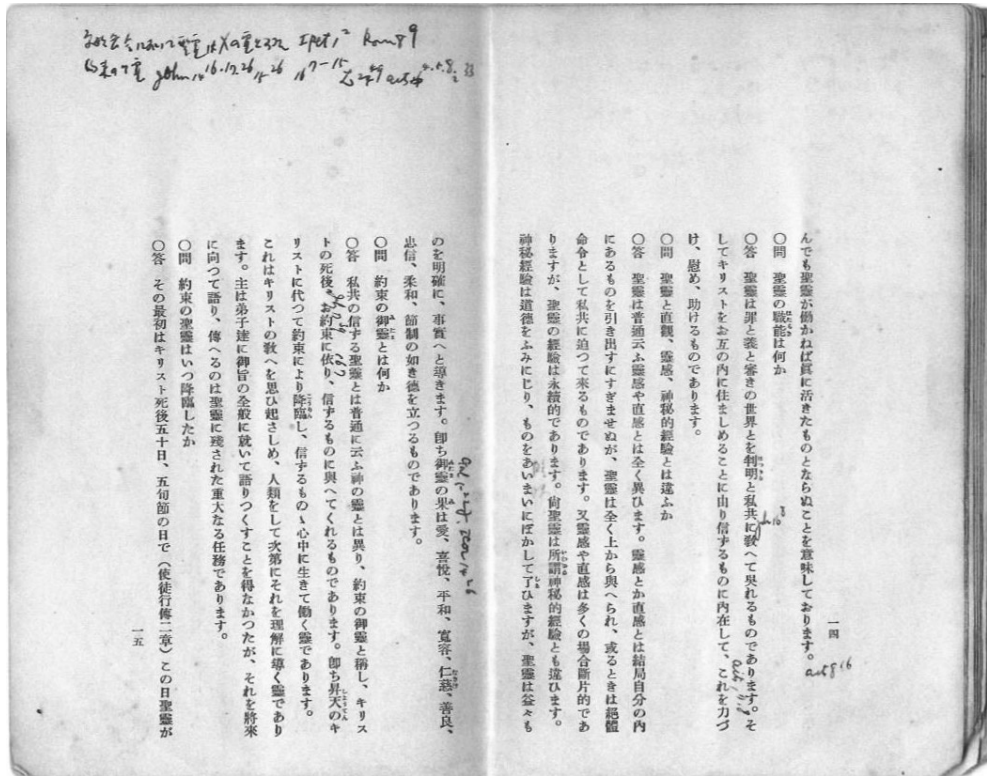 んでも聖靈が働かねば眞に活きたものとならぬことを意味しております。
○問　聖靈の職能は何か
○答　聖靈は罪と義と審きの世界とを判明と私共に敎へて呉れるものであります。そ
してキリストをお互の內に住ましめることに由り信ずるものに內在して、これを力づ
け、慰め、助けるものであります。
○問　聖靈と直觀、靈感、神秘的經驗とは違ふか
○答　聖靈は普通云ふ靈感や直感とは全く異ひます。靈感とか直感とは結局自分の內
にあるものを引き出すにすぎませぬが、聖靈は全く上から與へられ、或るときは絕體
命令として私共に迫つて來るものであります。又靈感や直感は多くの場合斷片的であ
りますが、聖靈の經驗は永續的であります。尙聖靈は所謂神秘的經驗とも違ひます。
神秘經驗は道德をふみにじり、ものをあいまいにぼかして了ひますが、聖靈は益々も
一四
act 8 16
のを明確に、事實へと導きます。卽ち御靈の果は愛、喜悅、平和、寬容、仁慈、善良、
忠信、柔和、節制の如き德を立つるものであります。
○問　約束の御靈とは何か
○答　私共の信ずる聖靈とは普通に云ふ神の靈とは異り、約束の御靈と稱し、キリス
トの死後、お約束に依り、信ずるものに與へてくれるものであります。卽ち昇天のキ
リストに代つて約束により降臨し、信ずるものゝ心中に生きて働く靈であります。
これはキリストの敎へを思ひ起さしめ、人類をして次第にそれを理解に導く靈であり
ます。主は弟子達に御旨の全般に就いて語りつくすことを得なかつたが、それを將來
に向つて語り、傳へるのは聖靈に殘された重大なる任務であります。
○問　約束の聖靈はいつ降臨したか
○答　その最初はキリスト死後五十日、五旬節の日で（使徒行傳二章）この日聖靈が
一五